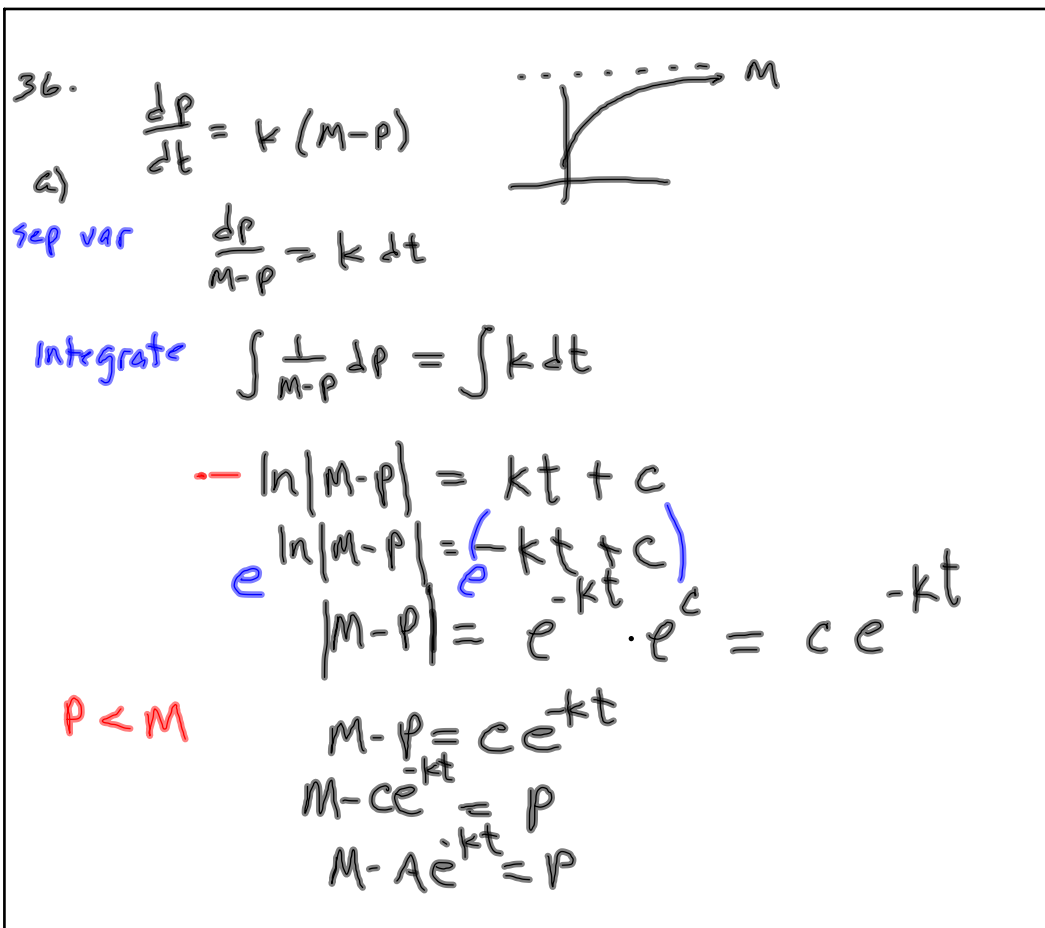 36.
dp/dt = k (M-P)
M
a)
sep var dp/M-P = k dt
Integrate ∫ 1/M-P dP = ∫ k dt
- ln|M-P| = kt + c
e^ln|M-P| = e^(-kt + c)
|M-P| = e^-kt · e^c = c e^-kt
P < M M-P = ce^-kt
M-ce^-kt = P
M-Ae^-kt = P